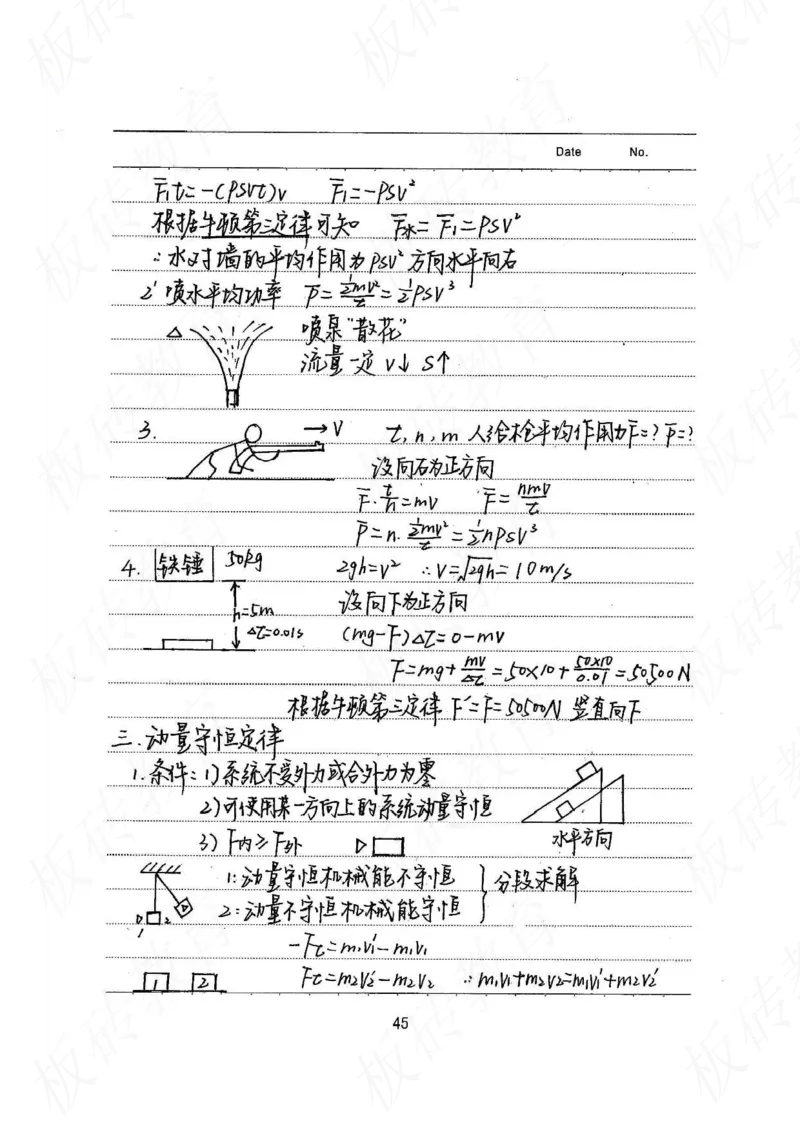 Date No.
F̄₁t=-(ρSVt)v F̄₁=-ρSV²
根据牛顿第三定律可知 F̄水=F̄₁=ρSV²
∴水对墙的平均作用力 ρSV² 方向水平向右
2' 喷水平均功率 P̄=½mv²/t=½ρSV³
△ 喷泉"散花"
流量一定 V↓ S↑
3. →V t,n,m 人给枪平均作用力F̄=? P̄=?
设向右为正方向
F̄·t/n=mV F̄=nmV/t
P̄=n·½mv²/t=½nρSV³
4. 铁锤 50kg 2gh=V² ∴V=√2gh=10m/s
h=5m 设向下为正方向
Δt=0.01s (mg-F)Δt=0-mV
F=mg+mV/Δt=50×10+50×10/0.01=50500N
根据牛顿第三定律 F'=F=50500N 竖直向下
三.动量守恒定律
1.条件:1)系统不受外力或合外力为零
2)可使用某一方向上的系统动量守恒
水平方向
3)F内≫F外
1:动量守恒机械能不守恒 } 分段求解
2:动量不守恒机械能守恒
1 2
-Ft=m₁V₁'-m₁V₁
1 2 Ft=m₂V₂'-m₂V₂ ∴m₁V₁+m₂V₂=m₁V₁'+m₂V₂'
45
板砖教育